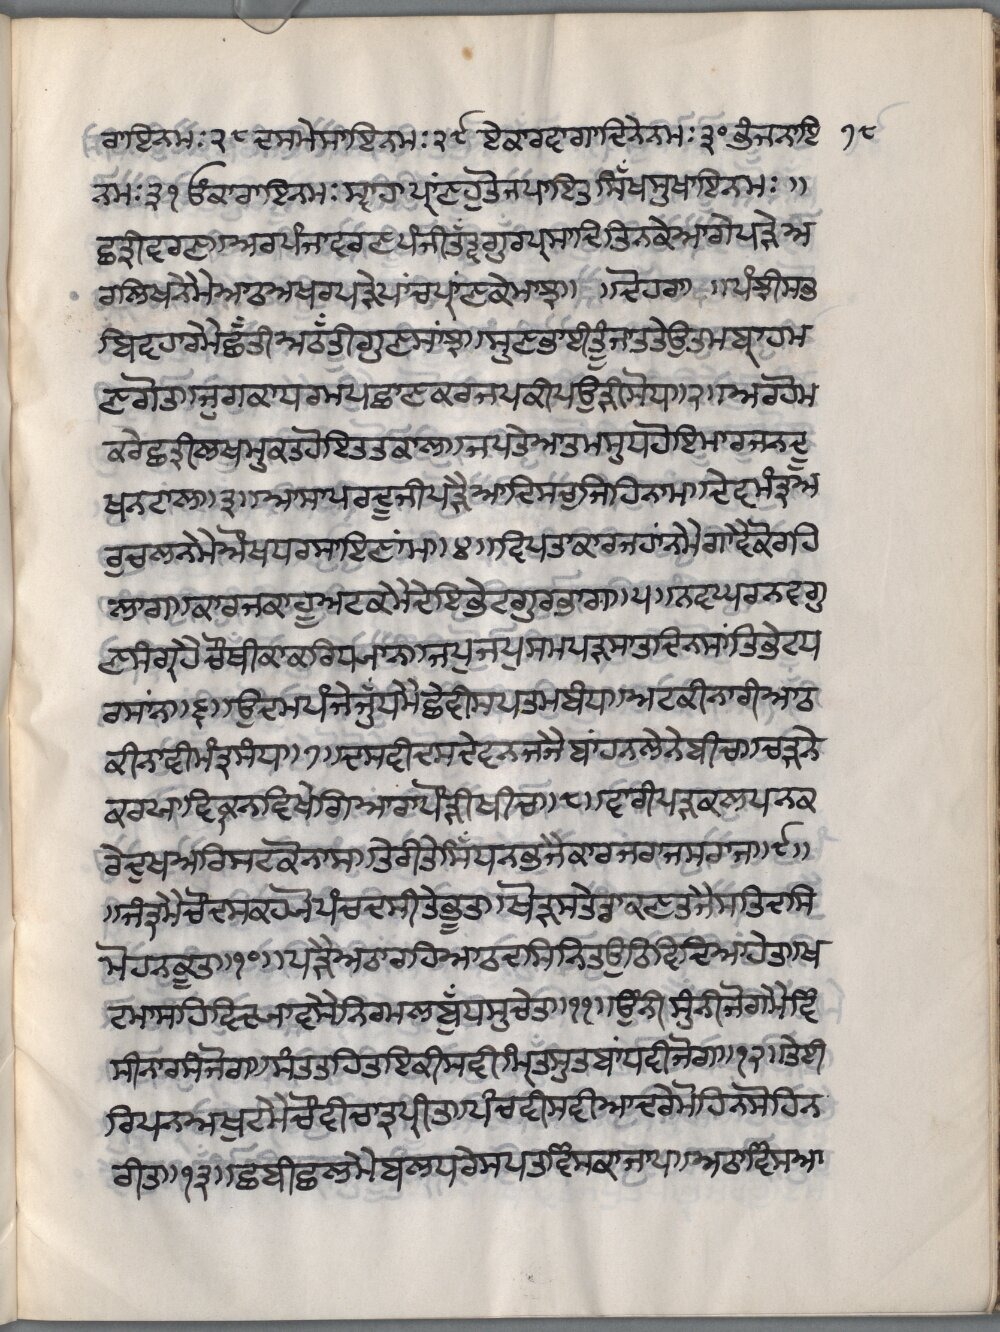 ਰਾਇਨਮਃ੨੮ਦਸਮੇਸਾਇਨਮਃ੨੯ਏਕਾਰਦਾਗਾਦਿਨੇਨਮਃ੩੦ਭੰਜਨਾਇ ੧੮
ਨਮਃ੩੧ਓਅੰਕਾਰਾਇਨਮਃਸ੍ਵਾਹਾਪ੍ਰਾਂਣਹੁਤੋਜਪਾਇਤੁਸਿੱਖਸੁਖਾਇਨਮਃ॥
ਛੜੀਵਰਣਾ।ਅਰਪੰਜਾਵਰਣਪੰਜੀਤੱਤ੍ਵਗੁਰਪ੍ਰਸਾਦਿਤਿਨਕੇਆਗੇਪੜੇਅ
ਰਲਿਖਨੇਮੈਆਠਅਖਰਪੜੇਪਾਂਚਪ੍ਰਾਂਣਕੇਮਾਝ॥ ॥ਦੋਹਰਾ ॥ਪੰਝੀਸਭ
ਬਿਵਹਾਰਮੈਛੱਤੀਅਠੱਤੀਗੁਣਸਾਂਝ।ਸੁਣਭਾਈਤੂੰਜਾਤਤੇਉਤਮਬ੍ਰਾਹਮ
ਣਗੋਤਾ।ਜੁਗਕਾਧਰਮਪਛਾਣਕਰਜਪਕੀਪਉੜੀਸੋਧਾ॥੨॥ਅਰਹੋਮ
ਕਰੇਛੜੀਲਖਮੁਕਤਹੋਇਤਤਕਾਲਾ।ਜਪਤੇਆਤਮਸੁਧਹੋਇਮਾਰਜਨਦੂ
ਖਨਟਾਲਾ॥੩॥ਆਸਾਪਰਦੂਜੀਪੜੈਆਦਿਸਚੁਜਿਹਿਨਾਮਾ।ਦੇਵਮੰਤ੍ਰਅ
ਰੁਚਲਨੇਮੈਔਖਧਰਸਾਇਣਾਂਮਾ॥੪॥ਦ੍ਵਿਪਤਾਕਾਰਜਹਾਂਨਮੈਗਾਵੈਕੋਰਾਹਿ
ਲਾਗਾ।ਕਾਰਜਕਾਹੂਅਟਕਮੈਦੇਇਭੇਟਗੁਰਭਾਗਾ॥੫॥ਨਵਧਰਨਵਗੁ
ਣਸੰਗ੍ਰਹੈਚੌਥੀਕਾਕਰਿਧਯਾਨਾ।ਜਪੁਜਪੁਸਮਪੜਸਾਤਦਿਨਸਾਂਤਿਭੇਟਪ
ਰਸਾਂਨਾ॥੬॥ਉਦਮਪੰਜੇਜੁੱਧਮੈਛੇਵੀਸਪਤਮਬੰਧਾ।ਅਟਕੀਨਾਰੀਆਠ
ਕੀਨਾਵੀਮੰਤ੍ਰਸੰਧਾ॥੭॥ਦਸਵੀਦਸਦੇਵਨਜਜੈਬਾਂਹਨਲੇਨੇਬੀਚਾ।ਚੜਨੇ
ਕਰਯਾਦ੍ਵਿਕ੍ਰਨਵਿਖੇਗਿਆਰਾਪੌੜੀਖੀਚਾ॥੮॥ਬਾਰੀਪੜਕਲਪਨਕ
ਰੇਦੁਖਅਰਿਸਟਕੋਨਾਸਾ।ਤੇਰੀਤੇਸਿੱਧਨਭਜੈਕਾਰਜਰਾਜਸਰਾਜਾ॥੯॥
।ਜੰਤ੍ਰਮੈਚੌਦਸਕਹਯੋਪੰਚਦਸੀਤੇਭੂਤਾ।ਖੋੜਸਤੇਡਾਕਣਤਜੈਸਤਿਦਸਿ
ਮੋਹਨਕੂਤਾ॥੧੦॥ਪੜੈਅਠਾਰਹਿਆਠਦਸਿਨਿਤਉਠਿਵਿਦਿਆਹੇਤਾ।ਖ
ਟਮਾਸਹਿਦ੍ਵਿਦਯਾਵਸੈਨਿਰਮਲਬੁੱਧਸੁਚੇਤਾ॥੧੧॥ਉਂਨੀਸੁੰਨੀਜੋਗਮੈਵਿੰ
ਸੀਨਾਰਸੰਜੋਗਾ।ਸੰਤਤਹਿਤਇਕੀਸਵੀਮ੍ਰਿਤਸੁਤਬਾਂਧਵੀਜੋਗਾ॥੧੨॥ਤੇਈ
ਰਿਪਨਅਖੁਟਮੈਚੌਵੀਚਾਤ੍ਰਪ੍ਰੀਤਾ।ਪੰਚਵੀਸਵੀਆਦਰੇਮੋਹਿਨਮੋਹਿਨ
ਰੀਤਾ॥੧੩॥ਛਬੀਛਲਮੇਬਲਧਰੇਸਪਤਵਿੰਸਕਾਜਾਪਾ।ਅਠਾਵਿੰਸਆ